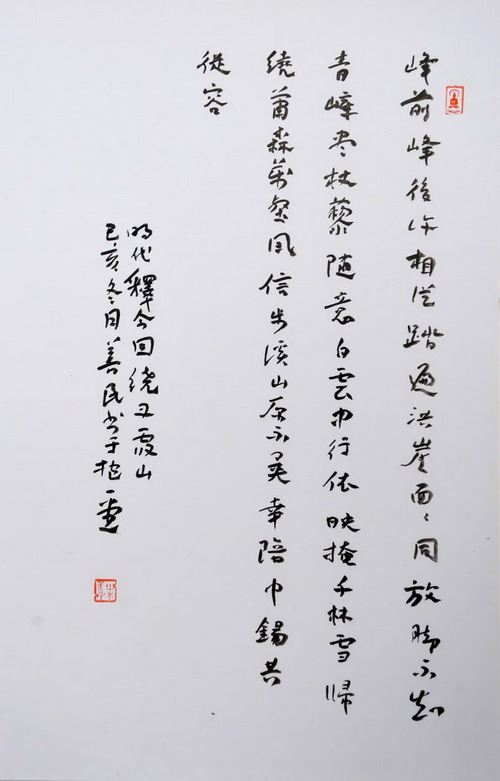 峰前峰後许相從踏遍洪崖面〻同放腳不知
青嶂盡杖藜随意白雲中行依映掩千林雪歸
繞蕭森萬壑風信步溪山原不異幸陪巾錫共
從容
明代釋今回繞丹霞山
己亥冬月善民书于抱一